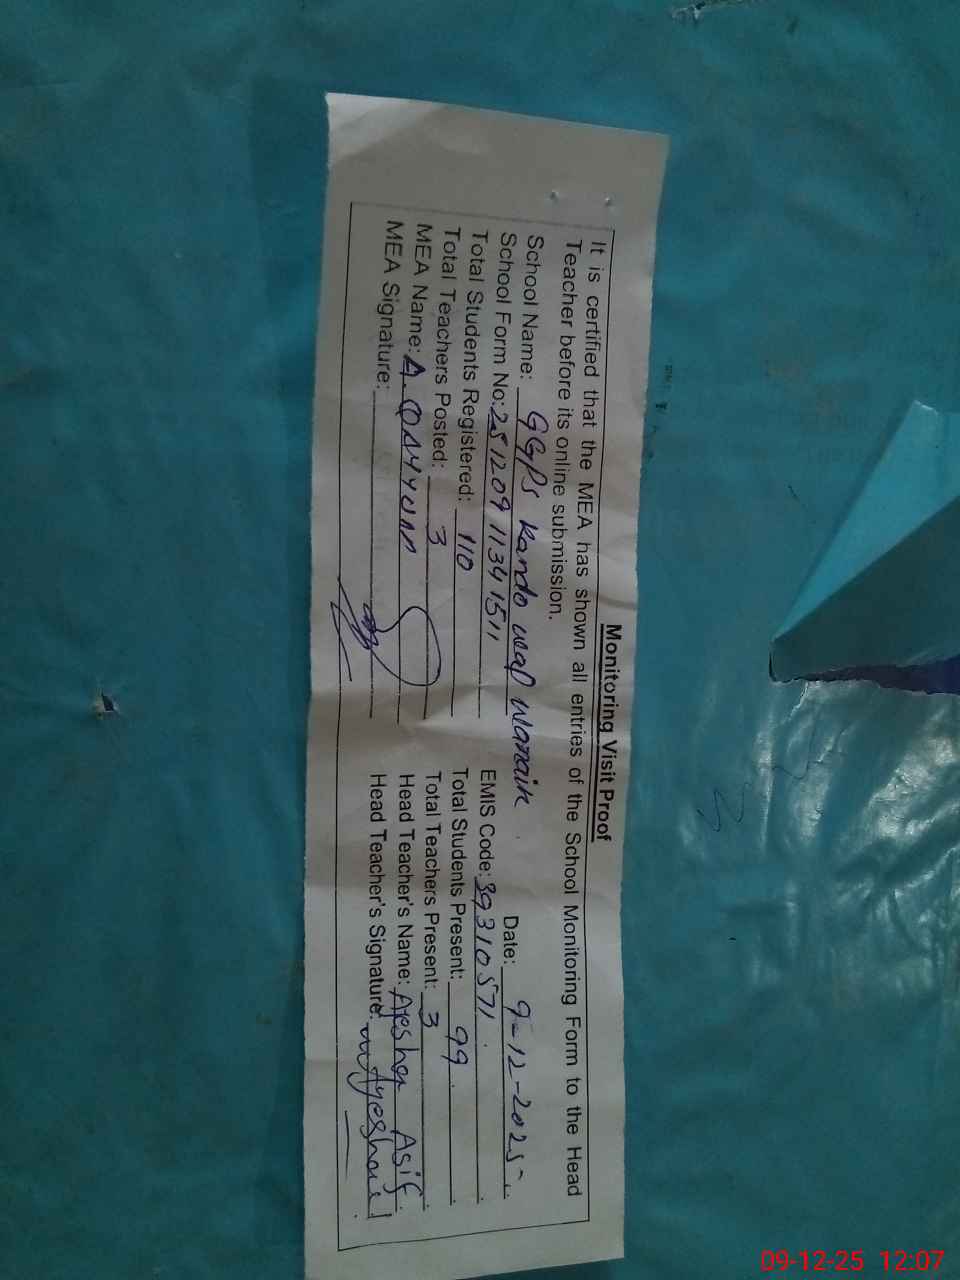 Monitoring Visit Proof
It is certified that the MEA has shown all entries of the School Monitoring Form to the Head
Teacher before its online submission.
School Name: GGPS Kando wal Manaik. Date: 9-12-2025
School Form No: 251209 11341511 EMIS Code: 39310571.
Total Students Registered: 110 Total Students Present: 99.
Total Teachers Posted: 3 Total Teachers Present: 3
MEA Name: A. QAYYUM Head Teacher's Name: Ayesha Asif
MEA Signature: Head Teacher's Signature:
09-12-25 12:07